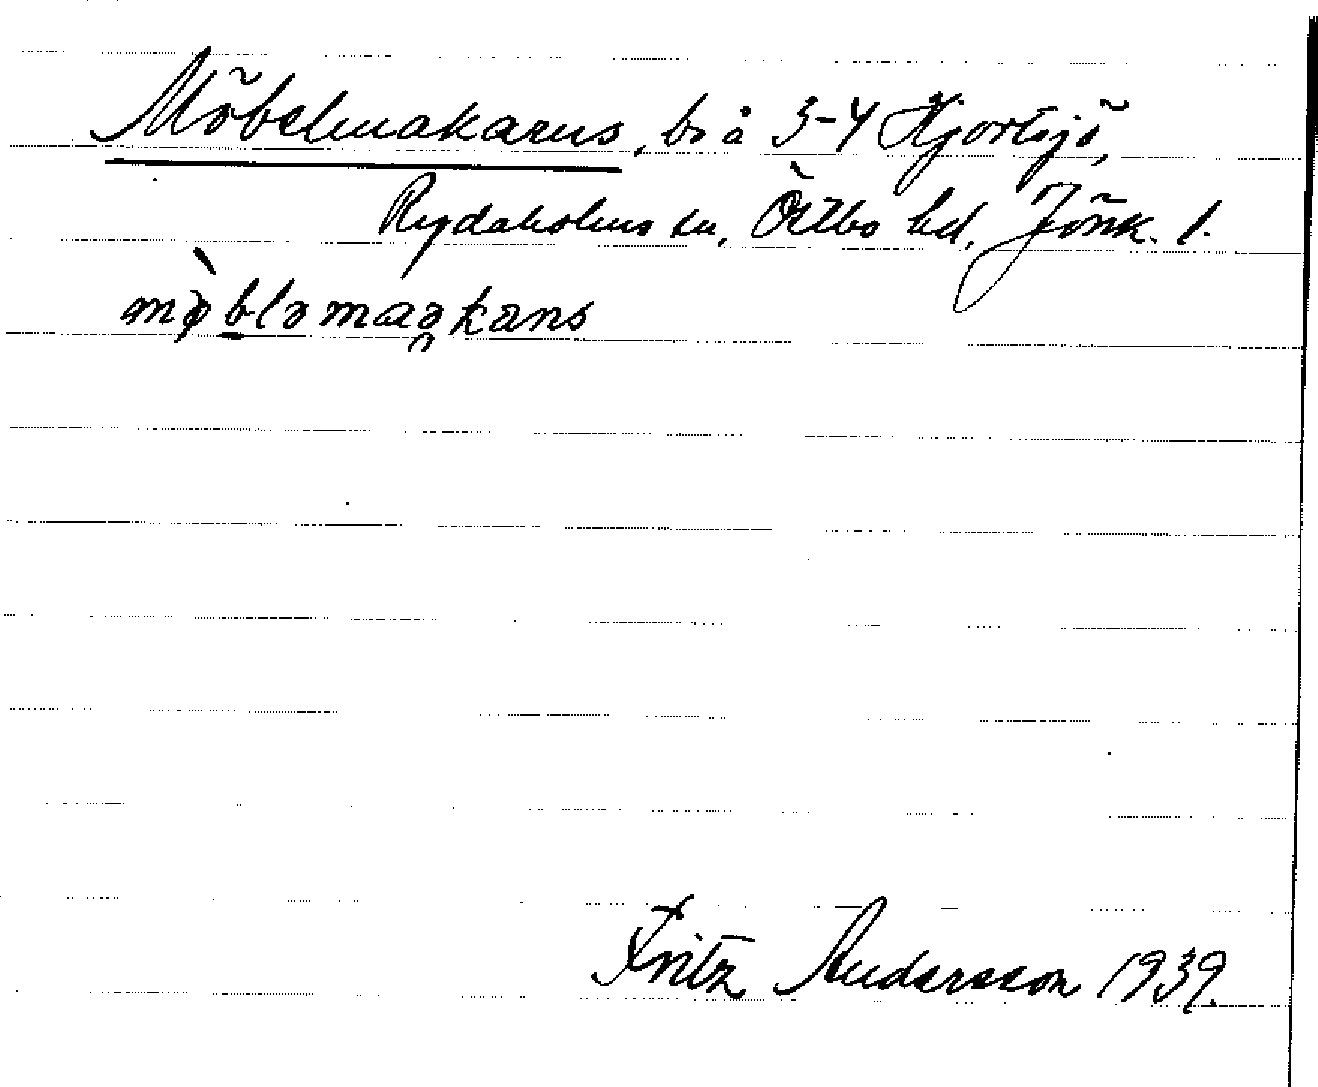 Möbelmakarns, bs å 3-4 Hjortsjö,
Rydaholms sn, Östbo hd, Jönk. l.
Fritz Andersson 1939.